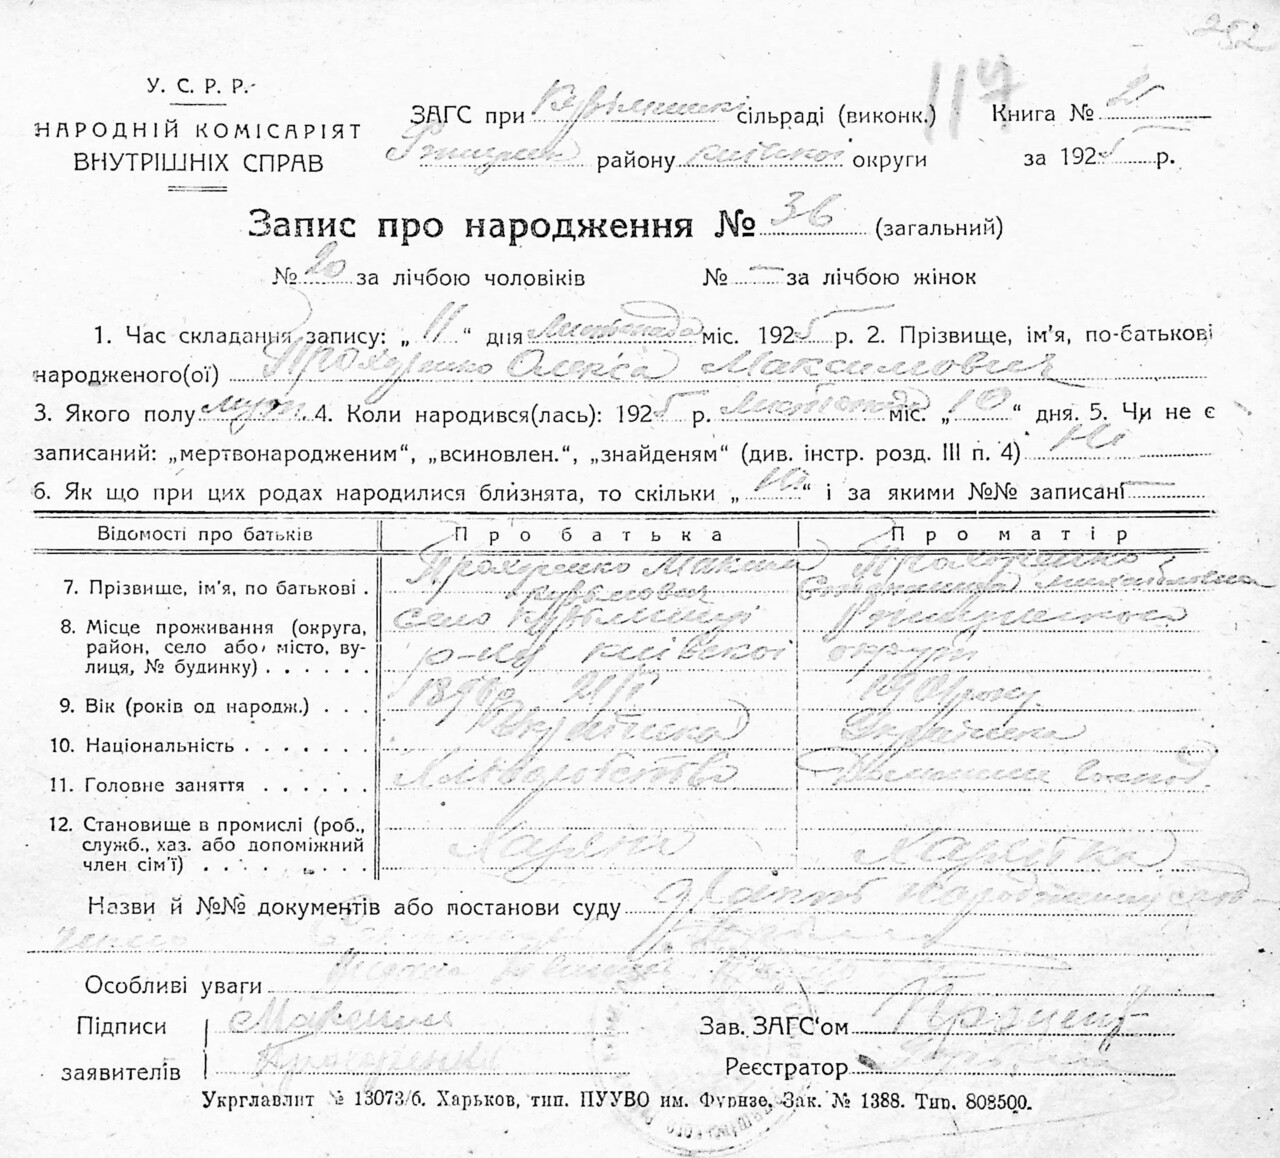 252
У. С. Р. Р.
НАРОДНІЙ КОМІСАРІЯТ
ВНУТРІШНІХ СПРАВ
117
ЗАГС при сільраді (виконк.) Книга № 2
району київської округи за 1925 р.
Запис про народження № 36 (загальний)
№ 20 за лічбою чоловіків № — за лічбою жінок
1. Час складання запису: „ 11 “ дня Листопада міс. 1925 р. 2. Прізвище, ім'я, по-батькові
народженого(ої) Прохоренко Олекса Максимович
3. Якого полу муж. 4. Коли народився(лась): 1925 р. Листопада міс. „ 10 “ дня. 5. Чи не є
записаний: „мертвонародженим“, „всиновлен.“, „знайденям“ (див. інстр. розд. III п. 4) Ні
6. Як що при цих родах народилися близнята, то скільки „ Ні “ і за якими №№ записані —
Відомості про батьків Про батька Про матір
7. Прізвище, ім'я, по батькові . Прохоренко Максим Кузьмович Прохоренко Михайловна
8. Місце проживання (округа, район, село або місто, вулиця, № будинку) . . . . . . село р-ну київскої округи
9. Вік (років од народж.) . . .
10. Національність . . . . . . . Українка
11. Головне заняття . . . . . . Хліборобство Домашнє господ
12. Становище в промислі (роб., служб., хаз. або допоміжний член сім'ї) . . . . . . . . Хазяїн Хазяйка
Назви й №№ документів або постанови суду
Особливі уваги
Підписи Максим Зав. ЗАГС'ом
заявителів Прохоренко Реєстратор
Укрглавлит № 13073/б. Харьков, тип. ПУУВО им. Фрунзе, Зак. № 1388. Тир. 808500.